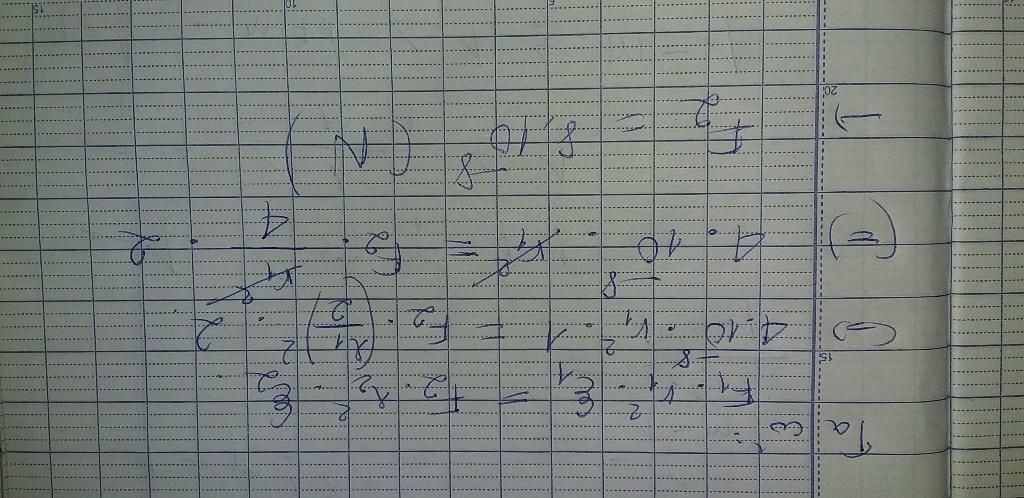 Ta có :
F₁ . r₁² . ε₁ = F₂ . r₂² . ε₂
15
(=) 4.10⁻⁸ . r₁² . 1 = F₂ . (r₁/2)² . 2
(=) 4 . 10⁻⁸ . r₁² = F₂ . r₁²/4 . 2
20
→ F₂ = 8.10⁻⁸ (N)
5 10 15